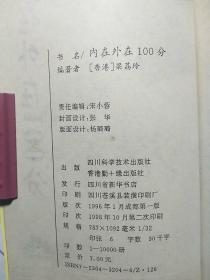 书 名/内在外在100分
编著者/[香港]梁荔玲
责任编辑:宋小蓉
封面设计:张 华
版面设计:杨璐璐
出版 四川科学技术出版社
香港勤+缘出版社
发行 四川省新华书店
印刷 四川苍溪县装潢印刷厂
版次 1996年1月成都第一版
印次 1998年10月第二次印刷
规格 787×1092毫米1/32
印张 6 字数 90千字
印数 1—10000册
ISBN7-5364-3204-4/Z·126